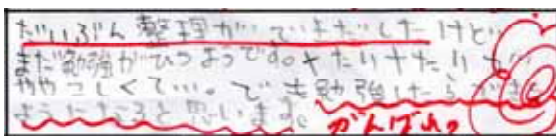 だいぶん整理ができだしたけど、
まだ勉強がひつようです。+たり+たりで
ややこしくて…。でも勉強したらできる
ようになると思います。がんばれっ